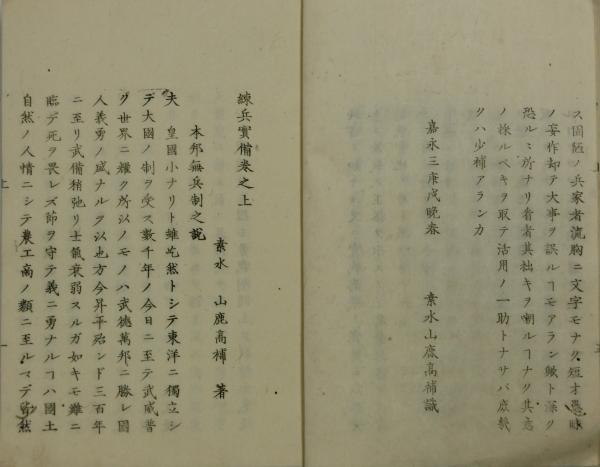 ス固陋ノ兵家者流胸ニ文字モナク短才愚昧
ノ妄作却テ大事ヲ誤ルヿモアラン歟ト深ク
恐ルヽ所ナリ看者其拙キヲ嘲ルヿナク其意
ノ採ルベキヲ取テ活用ノ一助トナサバ庶幾
クハ少補アランカ
嘉永三庚戌晩春
素水山鹿高補識
練兵實備卷之上
素水 山鹿高補 著
本邦無兵制之説
夫 皇國小ナリト雖𪜈然トシテ東洋ニ獨立シ
テ大國ノ制ヲ受ス數千年ノ今日ニ至テ武威普
ク世界ニ耀ク所以ノモノハ武德萬邦ニ勝レ國
人義勇ノ盛ナルヲ以也方今昇平殆ンド三百年
ニ至リ武備稍弛リ士氣衰弱スルガ如キモ難ニ
臨デ死ヲ畏レズ節ヲ守テ義ニ勇ナルヿハ國土
自然ノ人情ニシテ農工商ノ類ニ至ルマデ皆然